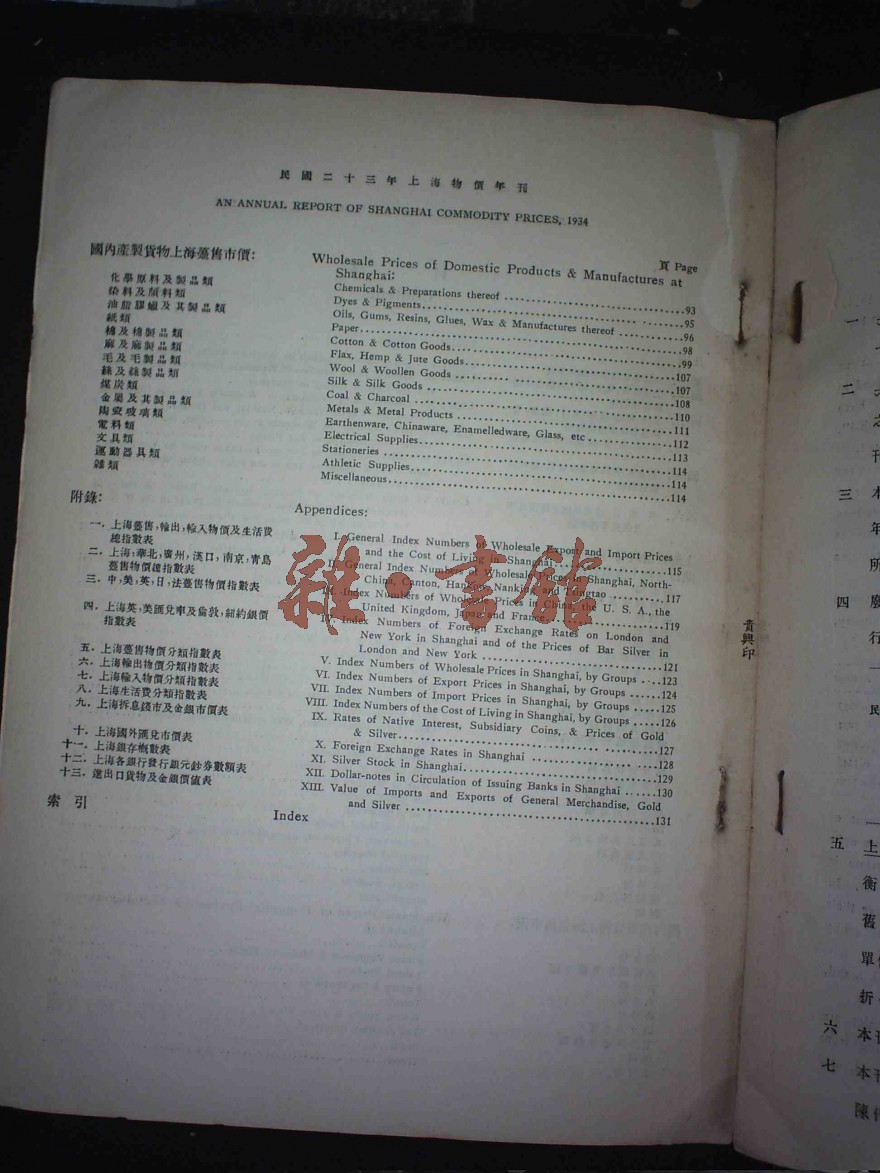 民國二十三年上海物價年刊
AN ANNUAL REPORT OF SHANGHAI COMMODITY PRICES, 1934
國內產製貨物上海躉售市價:
化學原料及製品類
染料及顏料類
油脂膠蠟及其製品類
紙類
棉及棉製品類
麻及麻製品類
毛及毛製品類
絲及絲製品類
煤炭類
金屬及其製品類
陶瓷玻璃類
電料類
文具類
運動器具類
雜類
頁 Page
Wholesale Prices of Domestic Products & Manufactures at
Shanghai:
Chemicals & Preparations thereof ........93
Dyes & Pigments........95
Oils, Gums, Resins, Glues, Wax & Manufactures thereof ........96
Paper........98
Cotton & Cotton Goods........99
Flax, Hemp & Jute Goods........107
Wool & Woollen Goods ........107
Silk & Silk Goods ........108
Coal & Charcoal ........110
Metals & Metal Products ........111
Earthenware, Chinaware, Enamelledware, Glass, etc ........112
Electrical Supplies........113
Stationeries ........114
Athletic Supplies........114
Miscellaneous........114
附錄:
一. 上海躉售,輸出,輸入物價及生活費
總指數表
二. 上海,華北,廣州,漢口,南京,青島
躉售物價總指數表
三. 中,美,英,日,法躉售物價指數表
四. 上海英,美匯兌率及倫敦,紐約銀價
指數表
五. 上海躉售物價分類指數表
六. 上海輸出物價分類指數表
七. 上海輸入物價分類指數表
八. 上海生活費分類指數表
九. 上海拆息錢市及金銀市價表
十. 上海國外匯兌市價表
十一. 上海銀存底數表
十二. 上海各銀行發行銀元鈔券數額表
十三. 進出口貨物及金銀價值表
索 引
Appendices:
I. General Index Numbers of Wholesale Export and Import Prices
and the Cost of Living in Shanghai........115
II. General Index Numbers of Wholesale Prices in Shanghai, North-
China, Canton, Hankow, Nanking and Tsingtao ........117
III. Index Numbers of Wholesale Prices in China, the U. S. A., the
United Kingdom, Japan and France........119
IV. Index Numbers of Foreign Exchange Rates on London and
New York in Shanghai and of the Prices of Bar Silver in
London and New York ........121
V. Index Numbers of Wholesale Prices in Shanghai, by Groups ....123
VI. Index Numbers of Export Prices in Shanghai, by Groups ......124
VII. Index Numbers of Import Prices in Shanghai, by Groups .....125
VIII. Index Numbers of the Cost of Living in Shanghai, by Groups .....126
IX. Rates of Native Interest, Subsidiary Coins, & Prices of Gold
& Silver........127
X. Foreign Exchange Rates in Shanghai ........128
XI. Silver Stock in Shanghai........129
XII. Dollar-notes in Circulation of Issuing Banks in Shanghai ......130
XIII. Value of Imports and Exports of General Merchandise, Gold
and Silver ........131
Index
雜·書館
貴興印
一
二
刊
三 本
年
所
四
行
民
五 上
衡
舊
單
折
六 本
七 本
陳